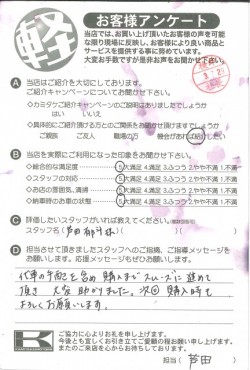 軽
お客様アンケート
当店では、お買い上げ頂いたお客様の声を可能
な限り現場に反映し、お客様により良い商品と
サービスを提供する事に努めています。
大変お手数ですが是非お声をお聞かせ下さい。
A 当店はご紹介を大切にしております。
ご紹介キャンペーンについてお聞かせ下さい。
◇カミタケご紹介キャンペーンのご説明はありましたでしょうか
はい いいえ
◇具体的にご紹介頂ける方とのご関係をお聞かせ頂けますでしょうか
ご親族 ご友人 職場の方 機会があれば紹介したい
B 当店を実際にご利用になった印象をお聞かせ下さい。
◇総合的な満足度 5.大満足 4.満足 3.ふつう 2.やや不満 1.不満
◇スタッフの対応 5.大満足 4.満足 3.ふつう 2.やや不満 1.不満
◇お店の雰囲気、清掃 5.大満足 4.満足 3.ふつう 2.やや不満 1.不満
◇納車時のお車の状態 5.大満足 4.満足 3.ふつう 2.やや不満 1.不満
C 評価したいスタッフがいれば教えてください。
スタッフ名( 芦田 様)
D 担当させて頂きましたスタッフへのご指摘、ご指導、応援
メッセージをお願いします。
代車の手配を含め 購入までスムーズに進めて
頂き 大変 助かりました。次回 購入時も
よろしくお願いします。
ご協力に心よりお礼を申し上げます。
今後とも宜しくお引き立てご愛顧の程お願い申し上げます。
またのご来店を心からお待ちしております。
担当( 芦田 )